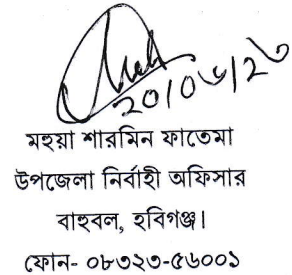 মহুয়া শারমিন ফাতেমা
উপজেলা নির্বাহী অফিসার
বাহুবল, হবিগঞ্জ।
ফোন- ০৮৩২৩-৫৬০০১